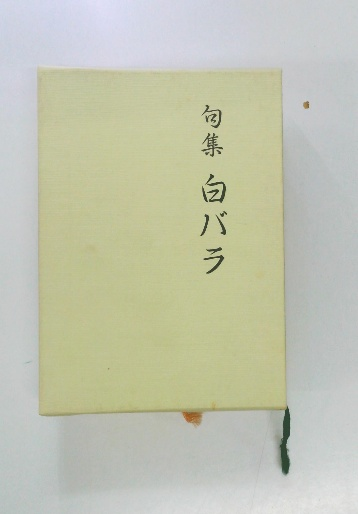 句集 白バラ